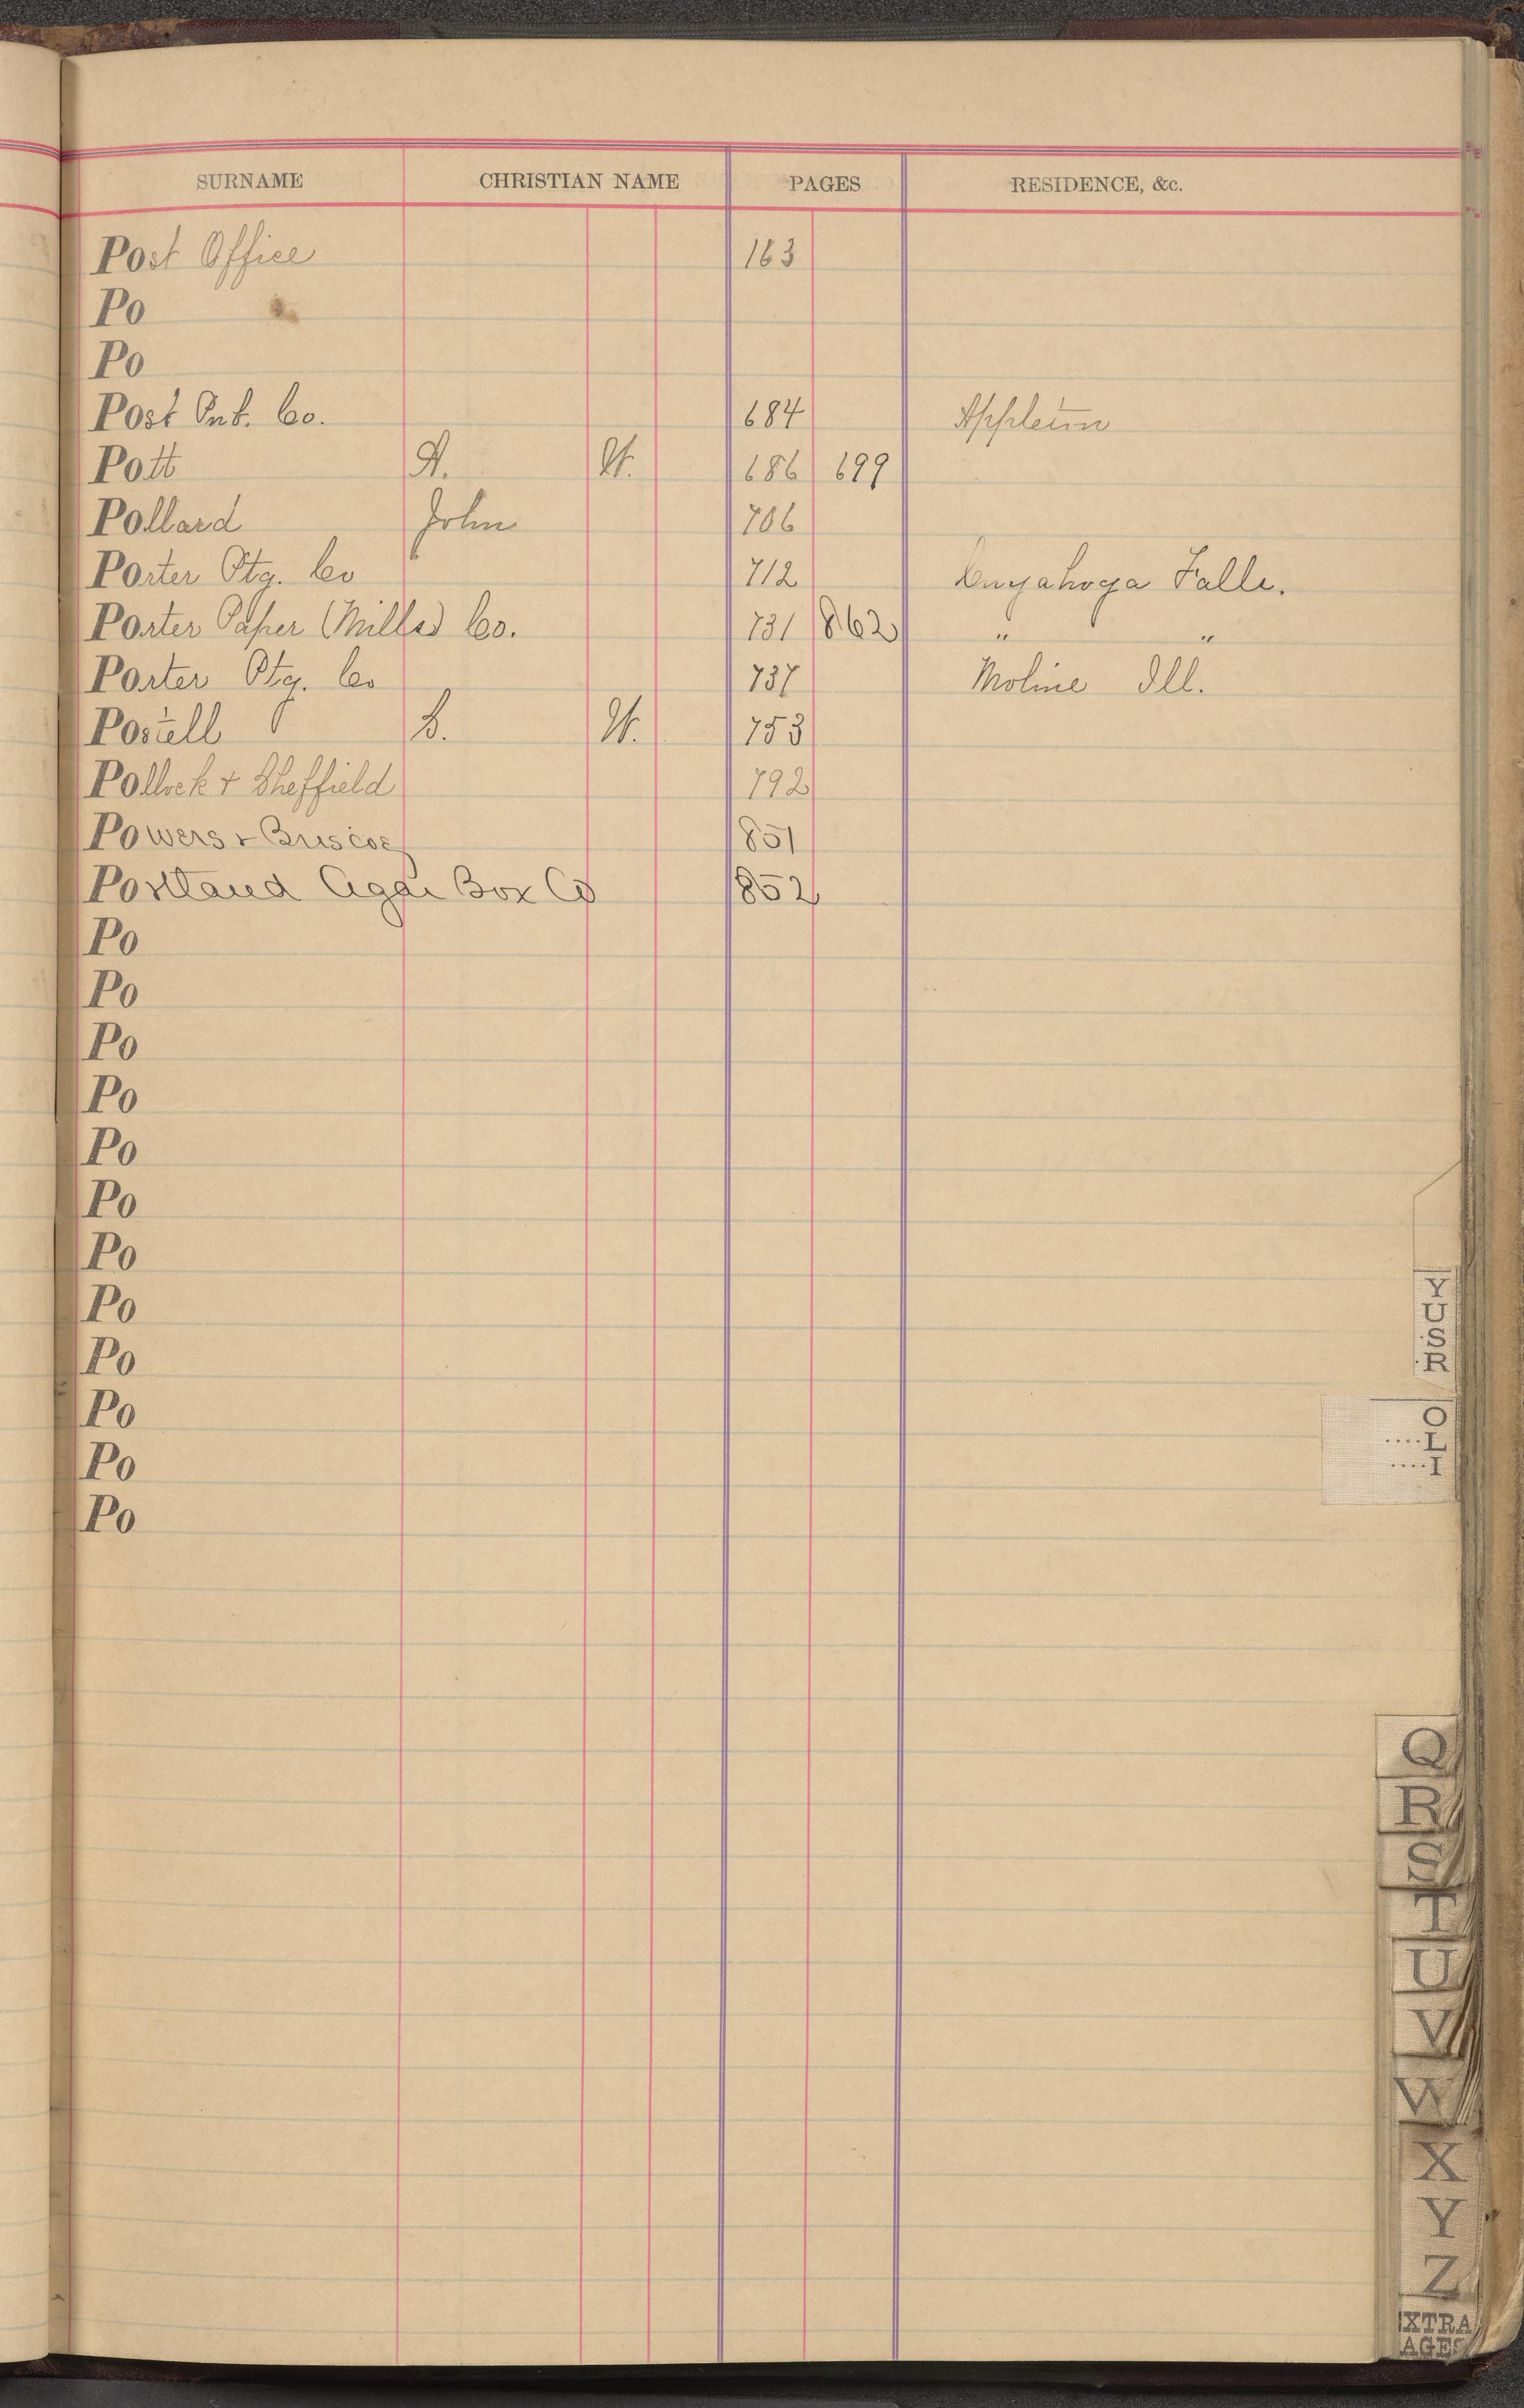 SURNAME CHRISTIAN NAME PAGES RESIDENCE, &c.
Post Office 163
Po
Po
Post Pub. Co. 684 Appleton
Pott A. W. 686 699
Pollard John 706
Porter Ptg. Co 712 Cuyahoga Falls.
Porter Paper (Mills) Co. 731 862 " "
Porter Ptg. Co 737 Moline Ill.
Postell C. W. 753
Pollock + Sheffield 792
Powers + Briscoe 851
Portland Cigar Box Co 852
Po
Po
Po
Po
Po
Po
Po
Po
Po
Po
Po
Po
Y
U
S
R
O
L
I
Q
R
S
T
U
V
W
X
Y
Z
XTRA
AGES